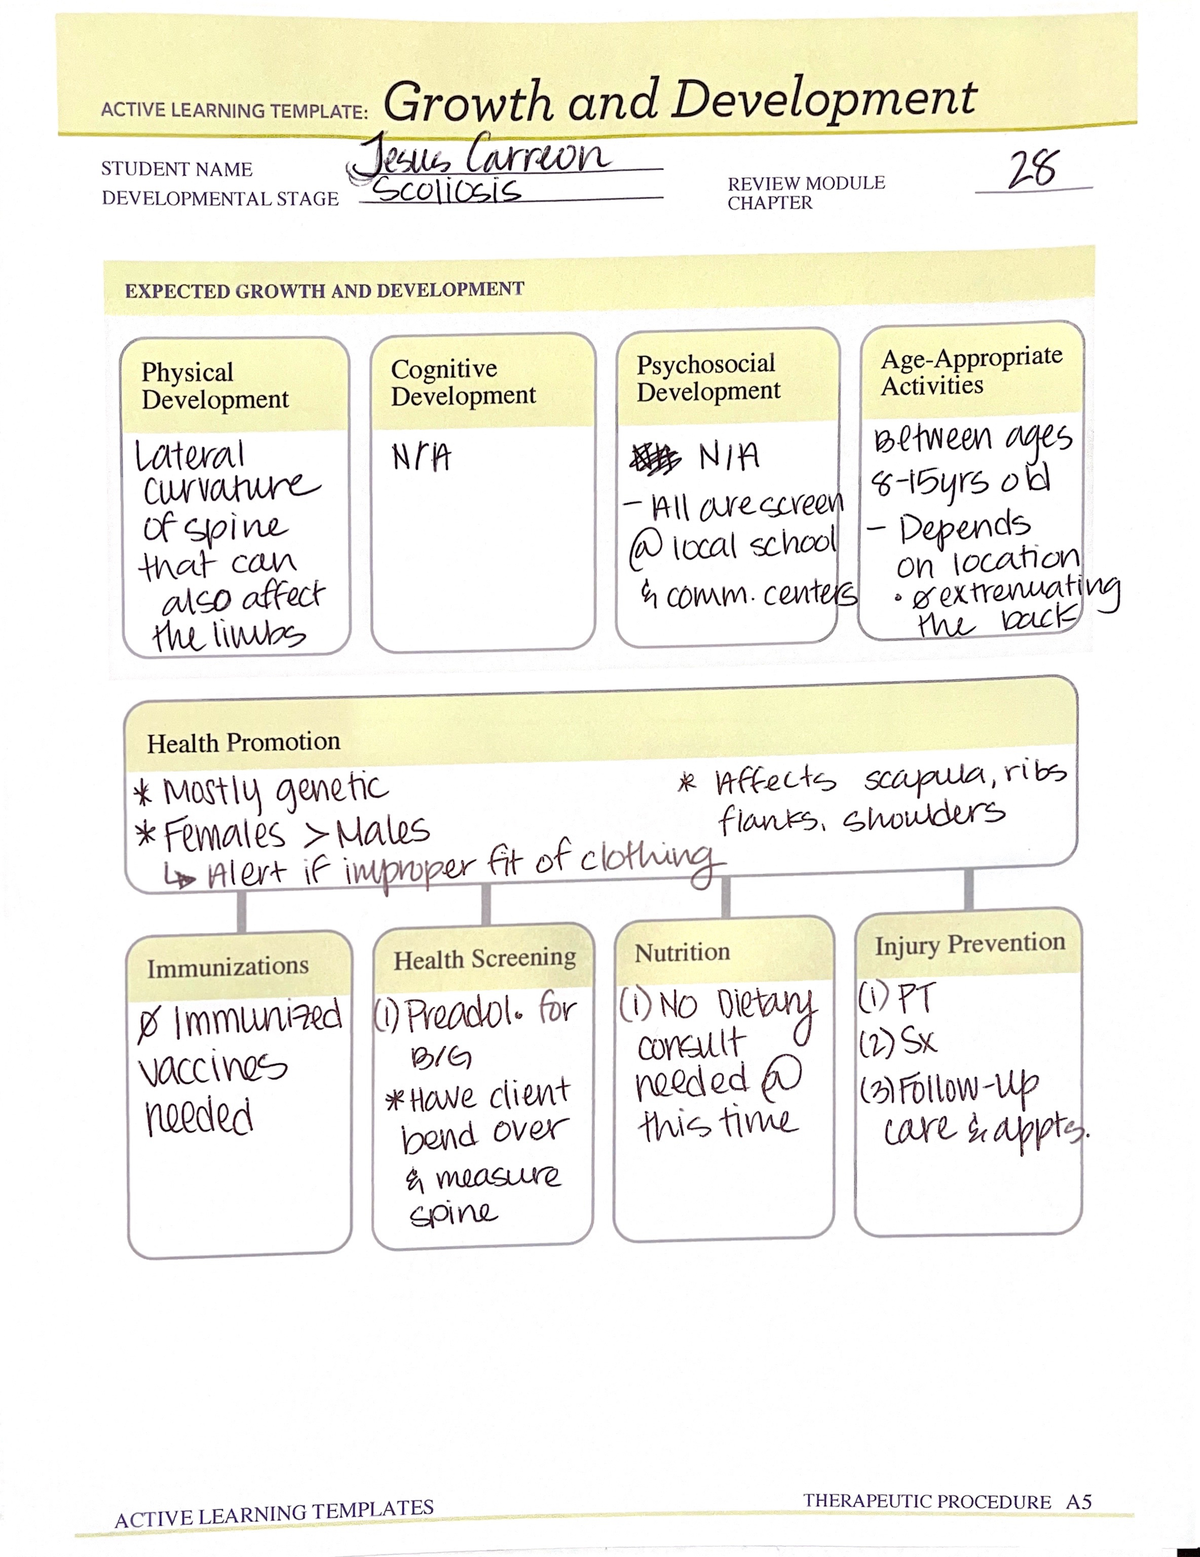 ACTIVE LEARNING TEMPLATE: Growth and Development
STUDENT NAME Jesus Carreon
DEVELOPMENTAL STAGE Scoliosis
REVIEW MODULE CHAPTER 28
EXPECTED GROWTH AND DEVELOPMENT
Physical
Development
Lateral
curvature
of spine
that can
also affect
the limbs
Cognitive
Development
N/A
Psychosocial
Development
N/A
- All are screen
@ local school
& comm. centers
Age-Appropriate
Activities
Between ages
8-15yrs old
- Depends
on location
• Ø extrenuating
the back
Health Promotion
* Mostly genetic
* Females > Males
↳ Alert if improper fit of clothing
* Affects scapula, ribs
flanks, shoulders
Immunizations
Ø Immunized
vaccines
needed
Health Screening
(1) Preadol. for
B/G
* Have client
bend over
& measure
spine
Nutrition
(1) No Dietary
consult
needed @
this time
Injury Prevention
(1) PT
(2) Sx
(3) Follow-up
care & appts.
ACTIVE LEARNING TEMPLATES
THERAPEUTIC PROCEDURE A5